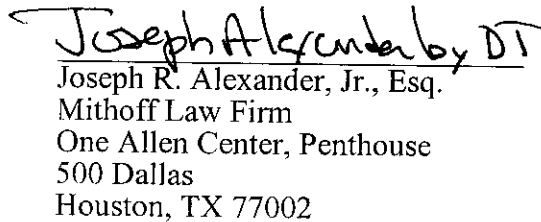 Joseph Alexander by DT
Joseph R. Alexander, Jr., Esq.
Mithoff Law Firm
One Allen Center, Penthouse
500 Dallas
Houston, TX 77002